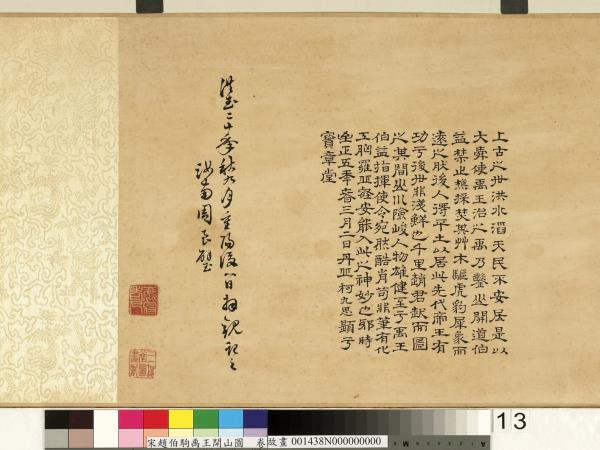 上古之世洪水滔天民不安居是以
大舜使禹王治之禹乃鑿山開道伯
益禁止樵採焚其艸木驅虎豹犀象而
遠之肰後人得平土以居此先代帝王有
功亏後世非淺鮮也千里趙君猷而圖
之其間山川險峻人物雄健至亏禹王
伯益指揮使令宛肰酷肖苟非筆有化
工胸羅丘壑安能入此之神妙也耶時
至正五年春三月二日丹丘柯九思題亏
寶章堂
洪武二十年秋九月重陽後一日拜觀記之
周良璧
13
宋趙伯駒禹王開山圖 卷
故畫 001438N000000000